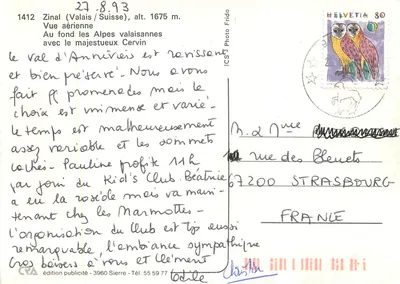 27.8.93
1412 Zinal (Valais/Suisse), alt. 1675 m.
Vue aérienne
Au fond les Alpes valaisannes
avec le majestueux Cervin
Le val d'Anniviers est ravissant
et bien préservé. Nous avons
fait promenades mais le
choix est immense et varié.
Le temps est malheureusement
assez variable et les sommets
cachés. Pauline profite 11h
par jour du Kid's Club. Béatrice
a eu la roséole mais va main-
tenant chez les Marmottes.
L'organisation du Club est tjs aussi
remarquable l'ambiance sympathique
Gros baisers à vous et Clément
Odile
Christian
édition publicité - 3960 Sierre - Tél. 55 59 77
ICS Photo Frido
HELVETIA 80
M. & Mme
rue des Bleuets
67200 STRASBOURG
FRANCE